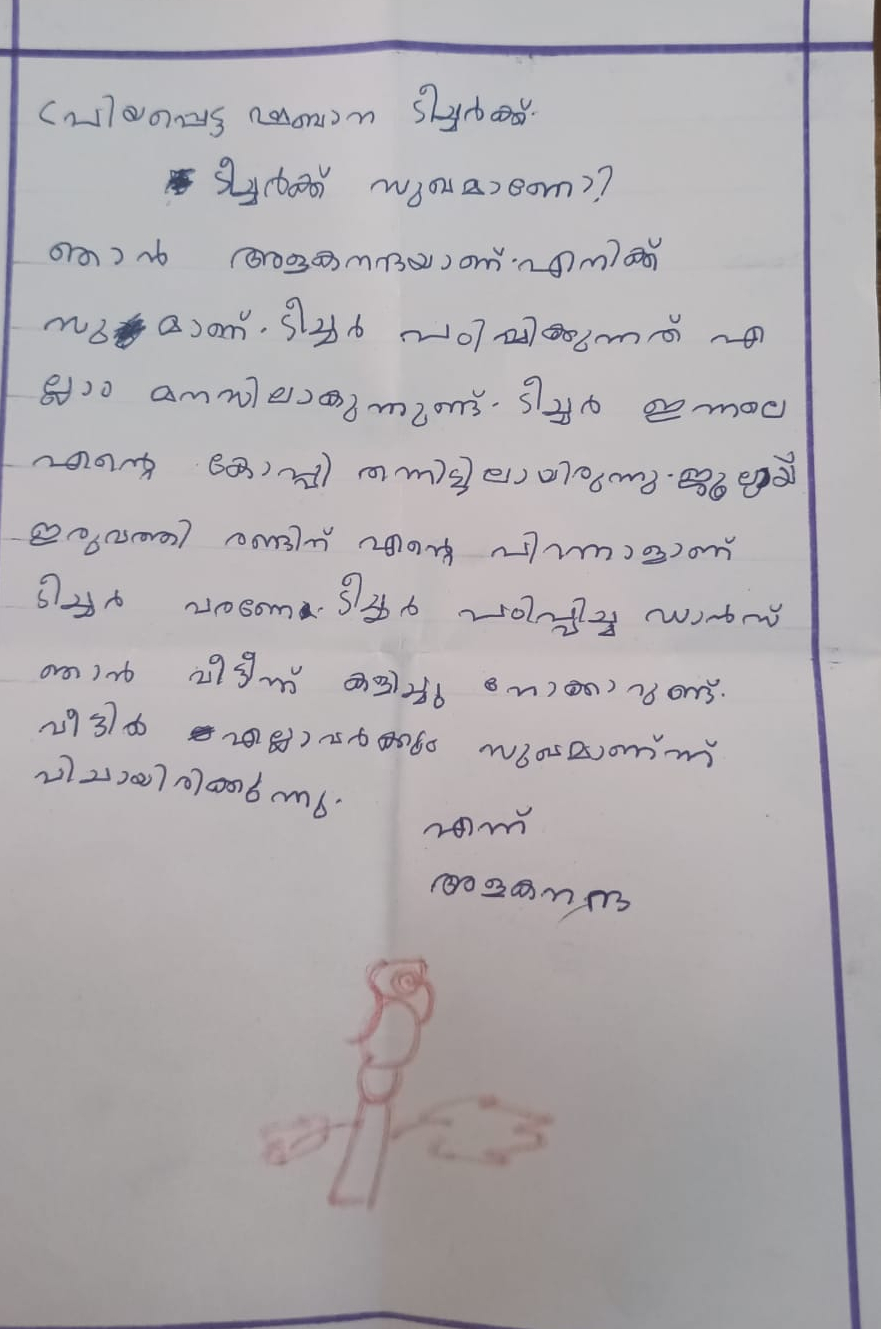 പ്രിയപ്പെട്ട ഷബാന ടീച്ചർക്ക്.
ടീച്ചർക്ക് സുഖമാണോ?
ഞാൻ അളകനന്ദയാണ്. എനിക്ക്
സു മാണ്. ടീച്ചർ പഠിപ്പിക്കുന്നത് എ
ല്ലാം മനസിലാകുന്നുണ്ട്. ടീച്ചർ ഇന്നലെ
എന്റെ കോപ്പി തന്നിട്ടിലായിരുന്നു. ജൂലൈ
ഇരുവത്തി രണ്ടിന് എന്റെ പിറന്നാളാണ്
ടീച്ചർ വരണേ. ടീച്ചർ പഠിപ്പിച്ച ഡാൻസ്
ഞാൻ വീട്ടീന്ന് കളിച്ചു നോക്കാറുണ്ട്.
വീട്ടിൽ എല്ലാവർക്കും സുഖമാണ്ന്ന്
വിചായിരിക്കുന്നു.
എന്ന്
അളകനന്ദ